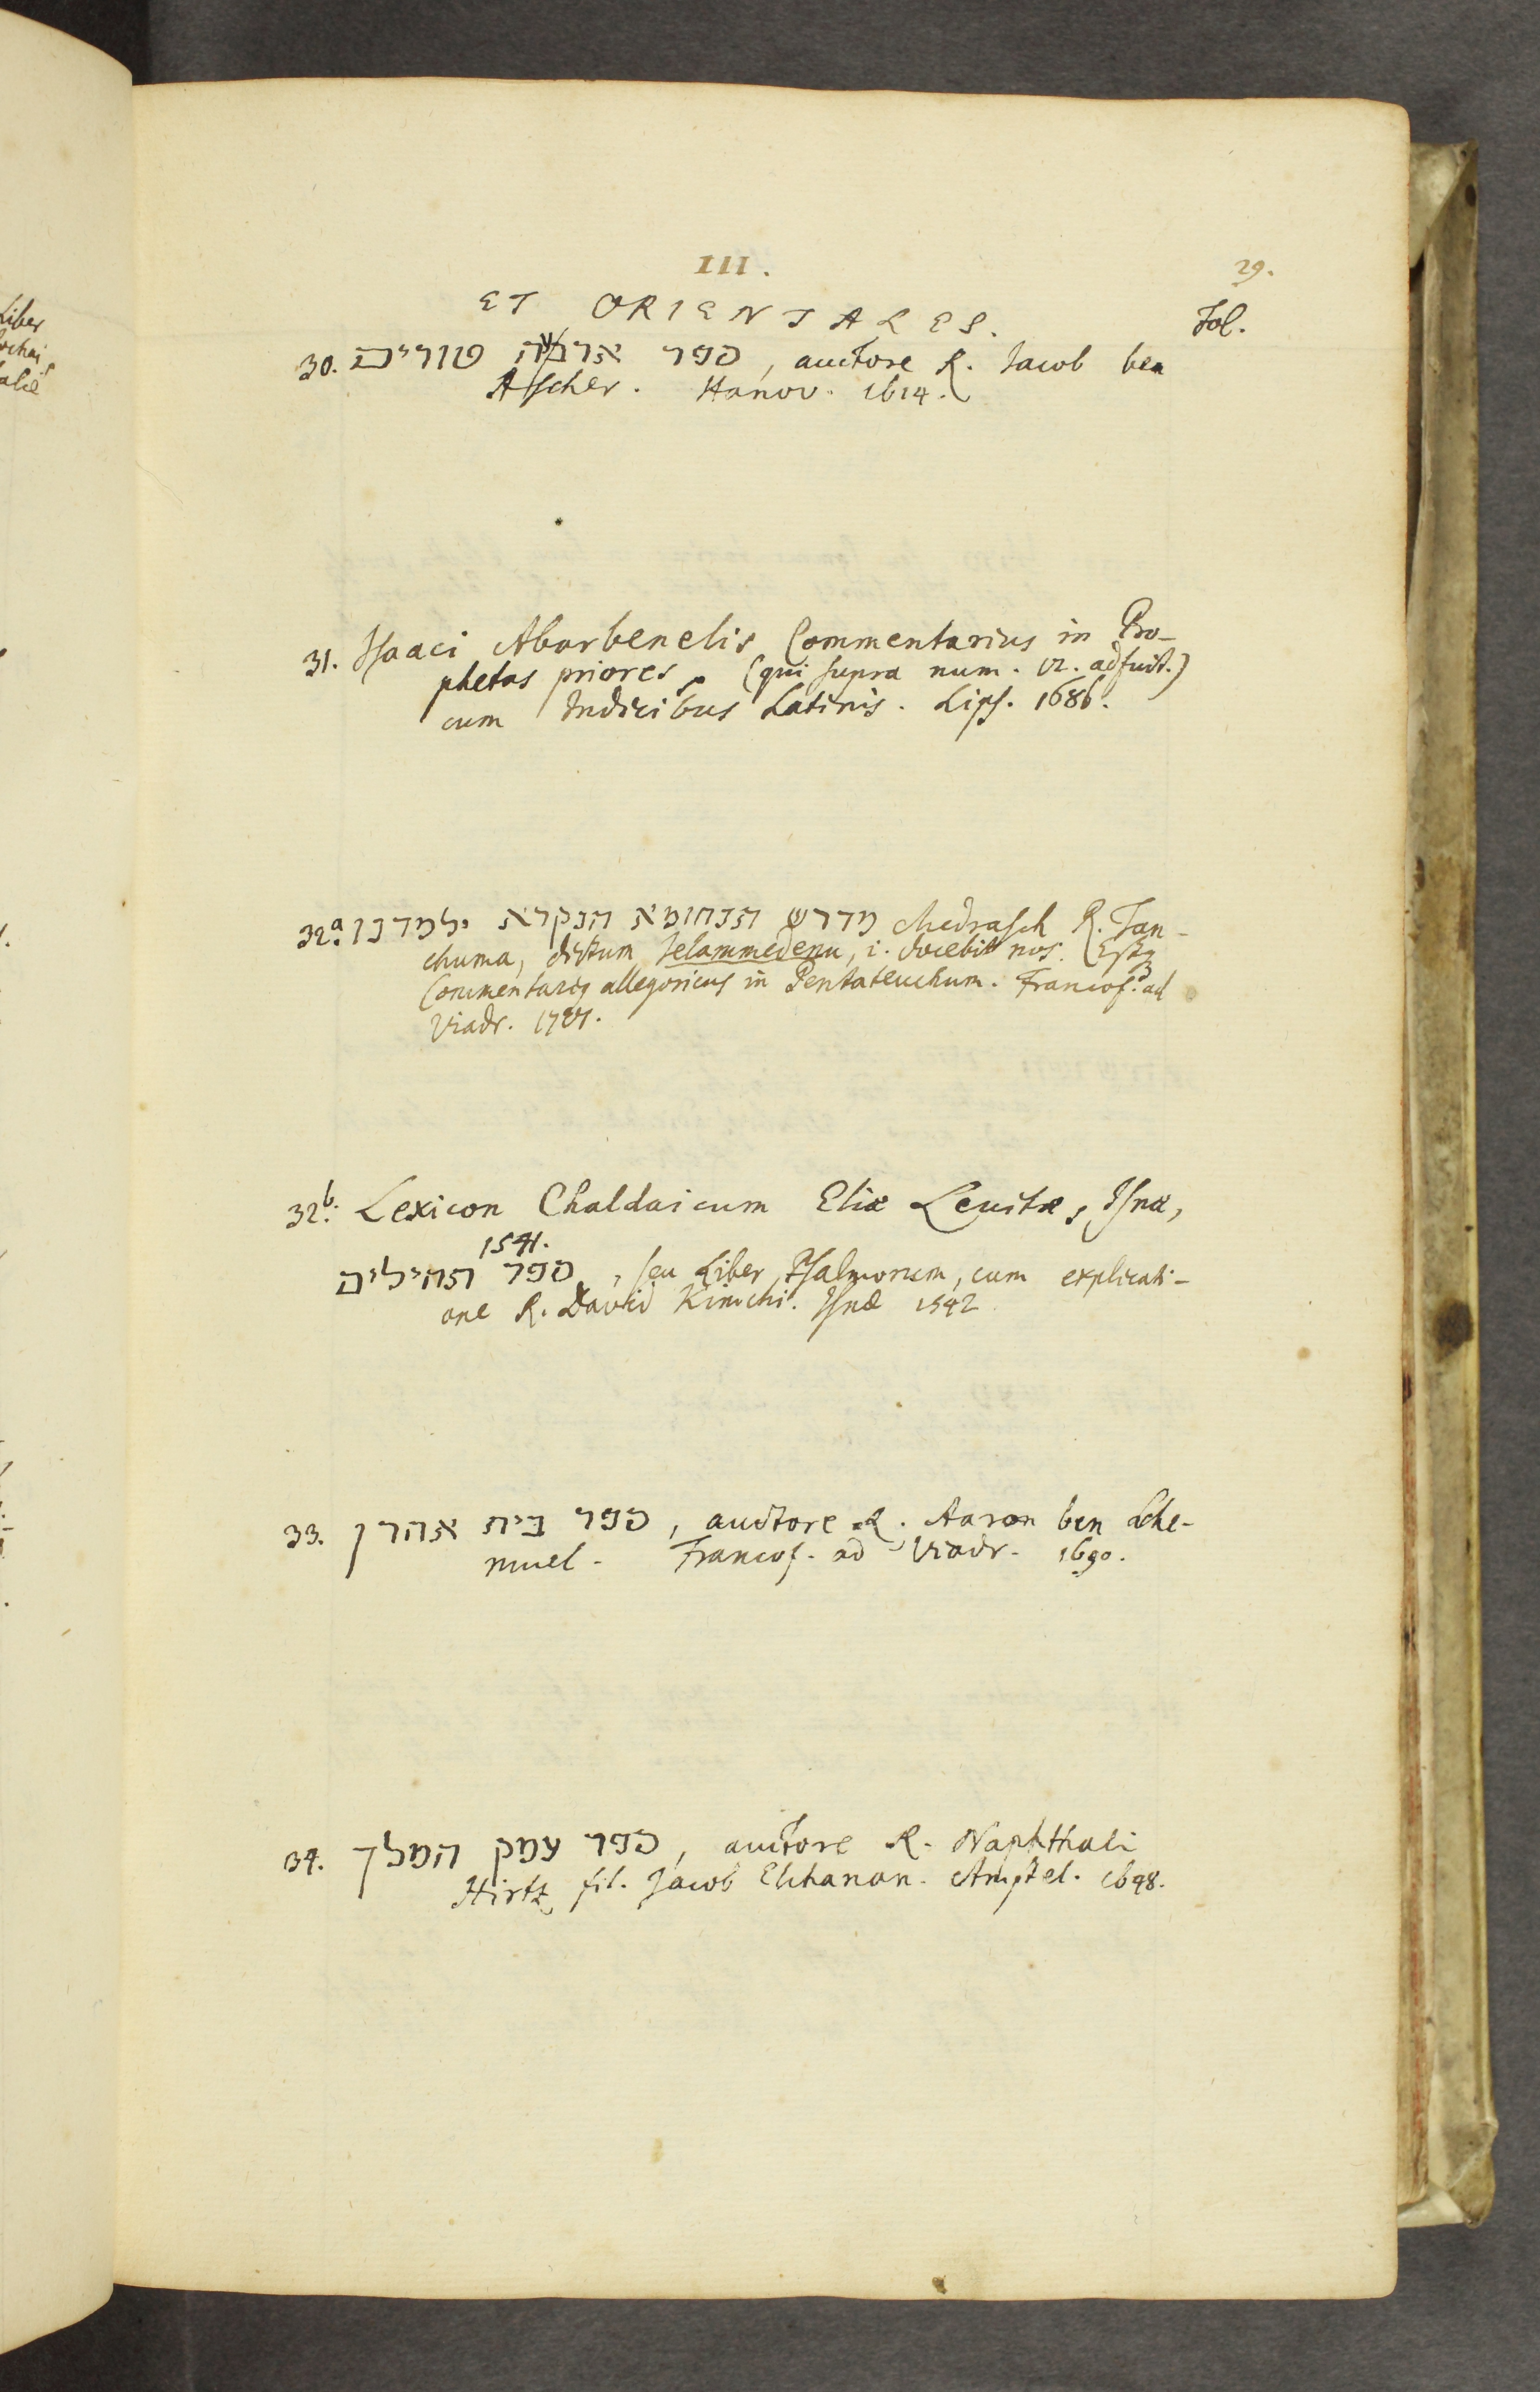 III.
29.
ET ORIENTALES.
Fol.
30. ספר ארבעה טורים, auctore R. Jacob ben
Ascher. Hanov. 1614.
31. Isaaci Abarbenelis Commentarius in Pro-
phetas priores, (qui supra num. 12. adfuit.)
cum Indicibus Latinis. Lips. 1686.
32.a מדרש תנחומא הנקרא ילמדנו Medrasch R. Tan-
chuma, dictum Jelammedenu, i. docebit nos. Estq3
Commentarius allegoricus in Pentateuchum. Francof. ad
Viadr.
32.b. Lexicon Chaldaicum Eliæ Levitæ, Isnæ,
1541.
ספר תהילים, seu Liber Psalmorum, cum explicati-
one R. David Kimchi. Isnæ 1542
33. ספר בית אהרן, auctore R. Aaron ben Sche-
muel. Francof. ad Viadr. 1690.
34. ספר עמק המלך, auctore R. Naphthali
Hirtz fil. Jacob Elchanan. Amstel. 1698.